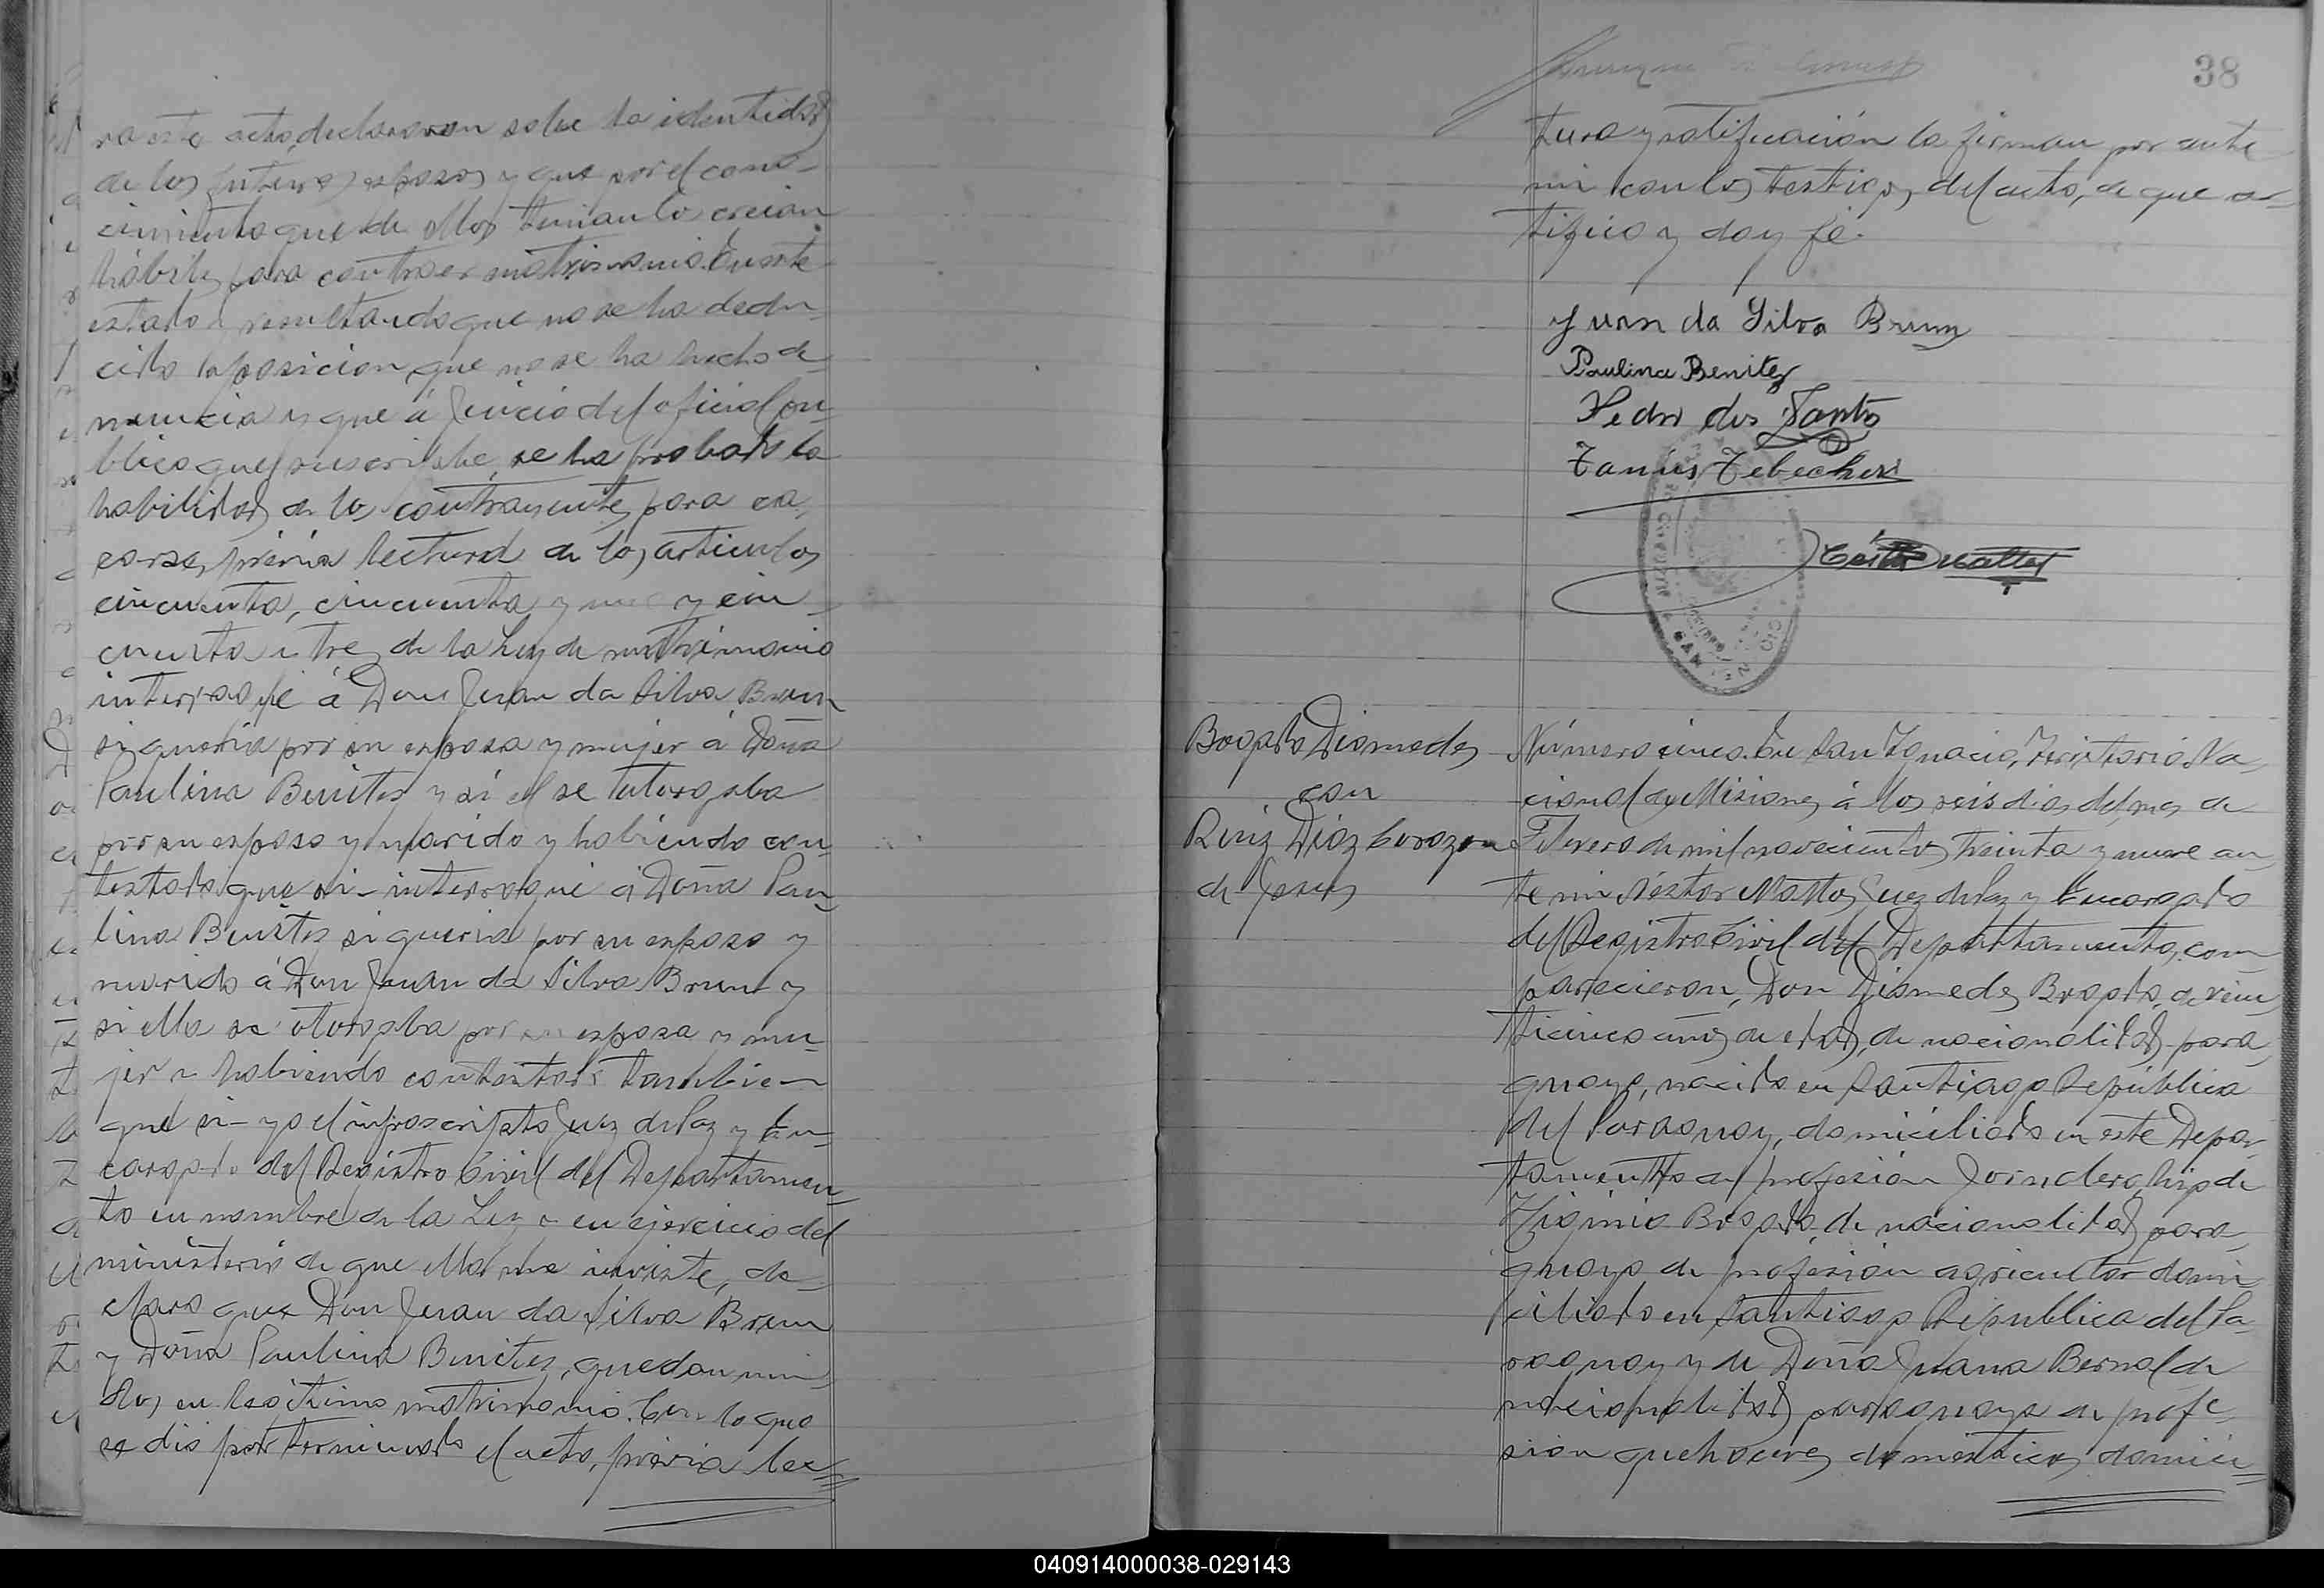 ra este acto, declararon sobre la identidad
de los futuros esposos y que por el cono-
cimiento que de ellos tenian lo creian
hábiles para contraer matrimonio. En este
estado y resultando que no se ha dedu-
cido oposicion, que no se ha hecho de-
nuncia y que á juicio del oficial pú-
blico que suscribe, se ha probado la
habilidad de los contrayentes para ca-
sarse, prévia lectura de los articulos
cincuenta, cincuenta y uno y cin-
cuenta y tres de la Ley de matrimonio
interrogué á Don Juan da Silva Brum
si queria por su esposa y mujer á Doña
Paulina Benitez y si el se le otorgaba
por su esposo y marido y habiendo con-
testado que si- interrogué á Doña Pau-
lina Benitez si queria por su esposo y
marido á Don Juan da Silva Brum y
si ella se otorgaba por su esposa y mu-
jer y habiendo contestado tambien
que si- yo el infrascripto Juez de Paz y En-
cargado del Registro Civil del Departamen-
to en nombre de la Ley y en ejercicio del
ministerio de que ella me inviste, de-
claro que Don Juan da Silva Brum
y Doña Paulina Benitez, quedan uni-
dos en legítimo matrimonio. Con lo que
se dió por terminado el acto, prévia lec-
38
tura y ratificación la firman por ante
mi con los testigos del acto, de que cer-
tifico y doy fé.
Juan da Silva Brum
Paulina Benitez
Pedro dos Santos
Tanús Tebecheri
Bogado Diomedes
con
Ruiz Diaz Corazon
de Jesus
Número cinco. En San Ignacio, Territorio Na-
cional de Misiones á los seis dias del mes de
Febrero de mil novecientos treinta y nueve an-
te mi Néstor Mattos Juez de Paz y Encargado
del Registro Civil del Departamento, com-
parecieron, Don Diomedes Bogado, de vein-
ticinco años de edad, de nacionalidad para-
guayo, nacido en Santiago República
del Paraguay, domiciliado en este Depar-
tamento de profesión Jornalero, hijo de
Higinio Bogado de nacionalidad para-
guayo de profesion agricultor domi-
ciliado en Santiago Republica del Pa-
raguay y de Doña Juana Bernal de
nacionalidad paraguaya de profe-
sion quehaceres domésticos domici-
040914000038-029143